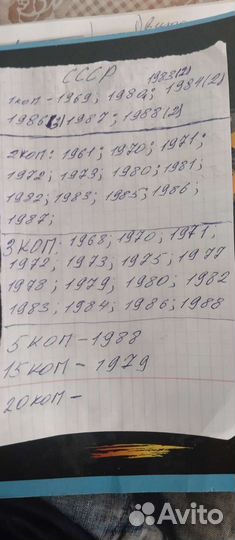 СССР 1983(2)
1коп-1969; 1980; 1984(2)
1986(2) 1987; 1988(2)
2коп: 1961; 1970; 1971;
1972; 1973; 1980; 1981;
1982; 1983; 1985; 1986;
1987;
3 КОП: 1968; 1970; 1971;
1972; 1973; 1975; 1977
1978; 1979; 1980; 1982
1983; 1984; 1986; 1988
5 КОП-1988
15 КОП - 1979
20 КОП -
Avito